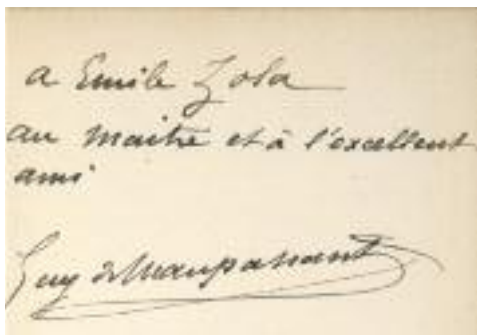 a Emile Zola
au maitre et à l'excellent
ami
Guy de Maupassant